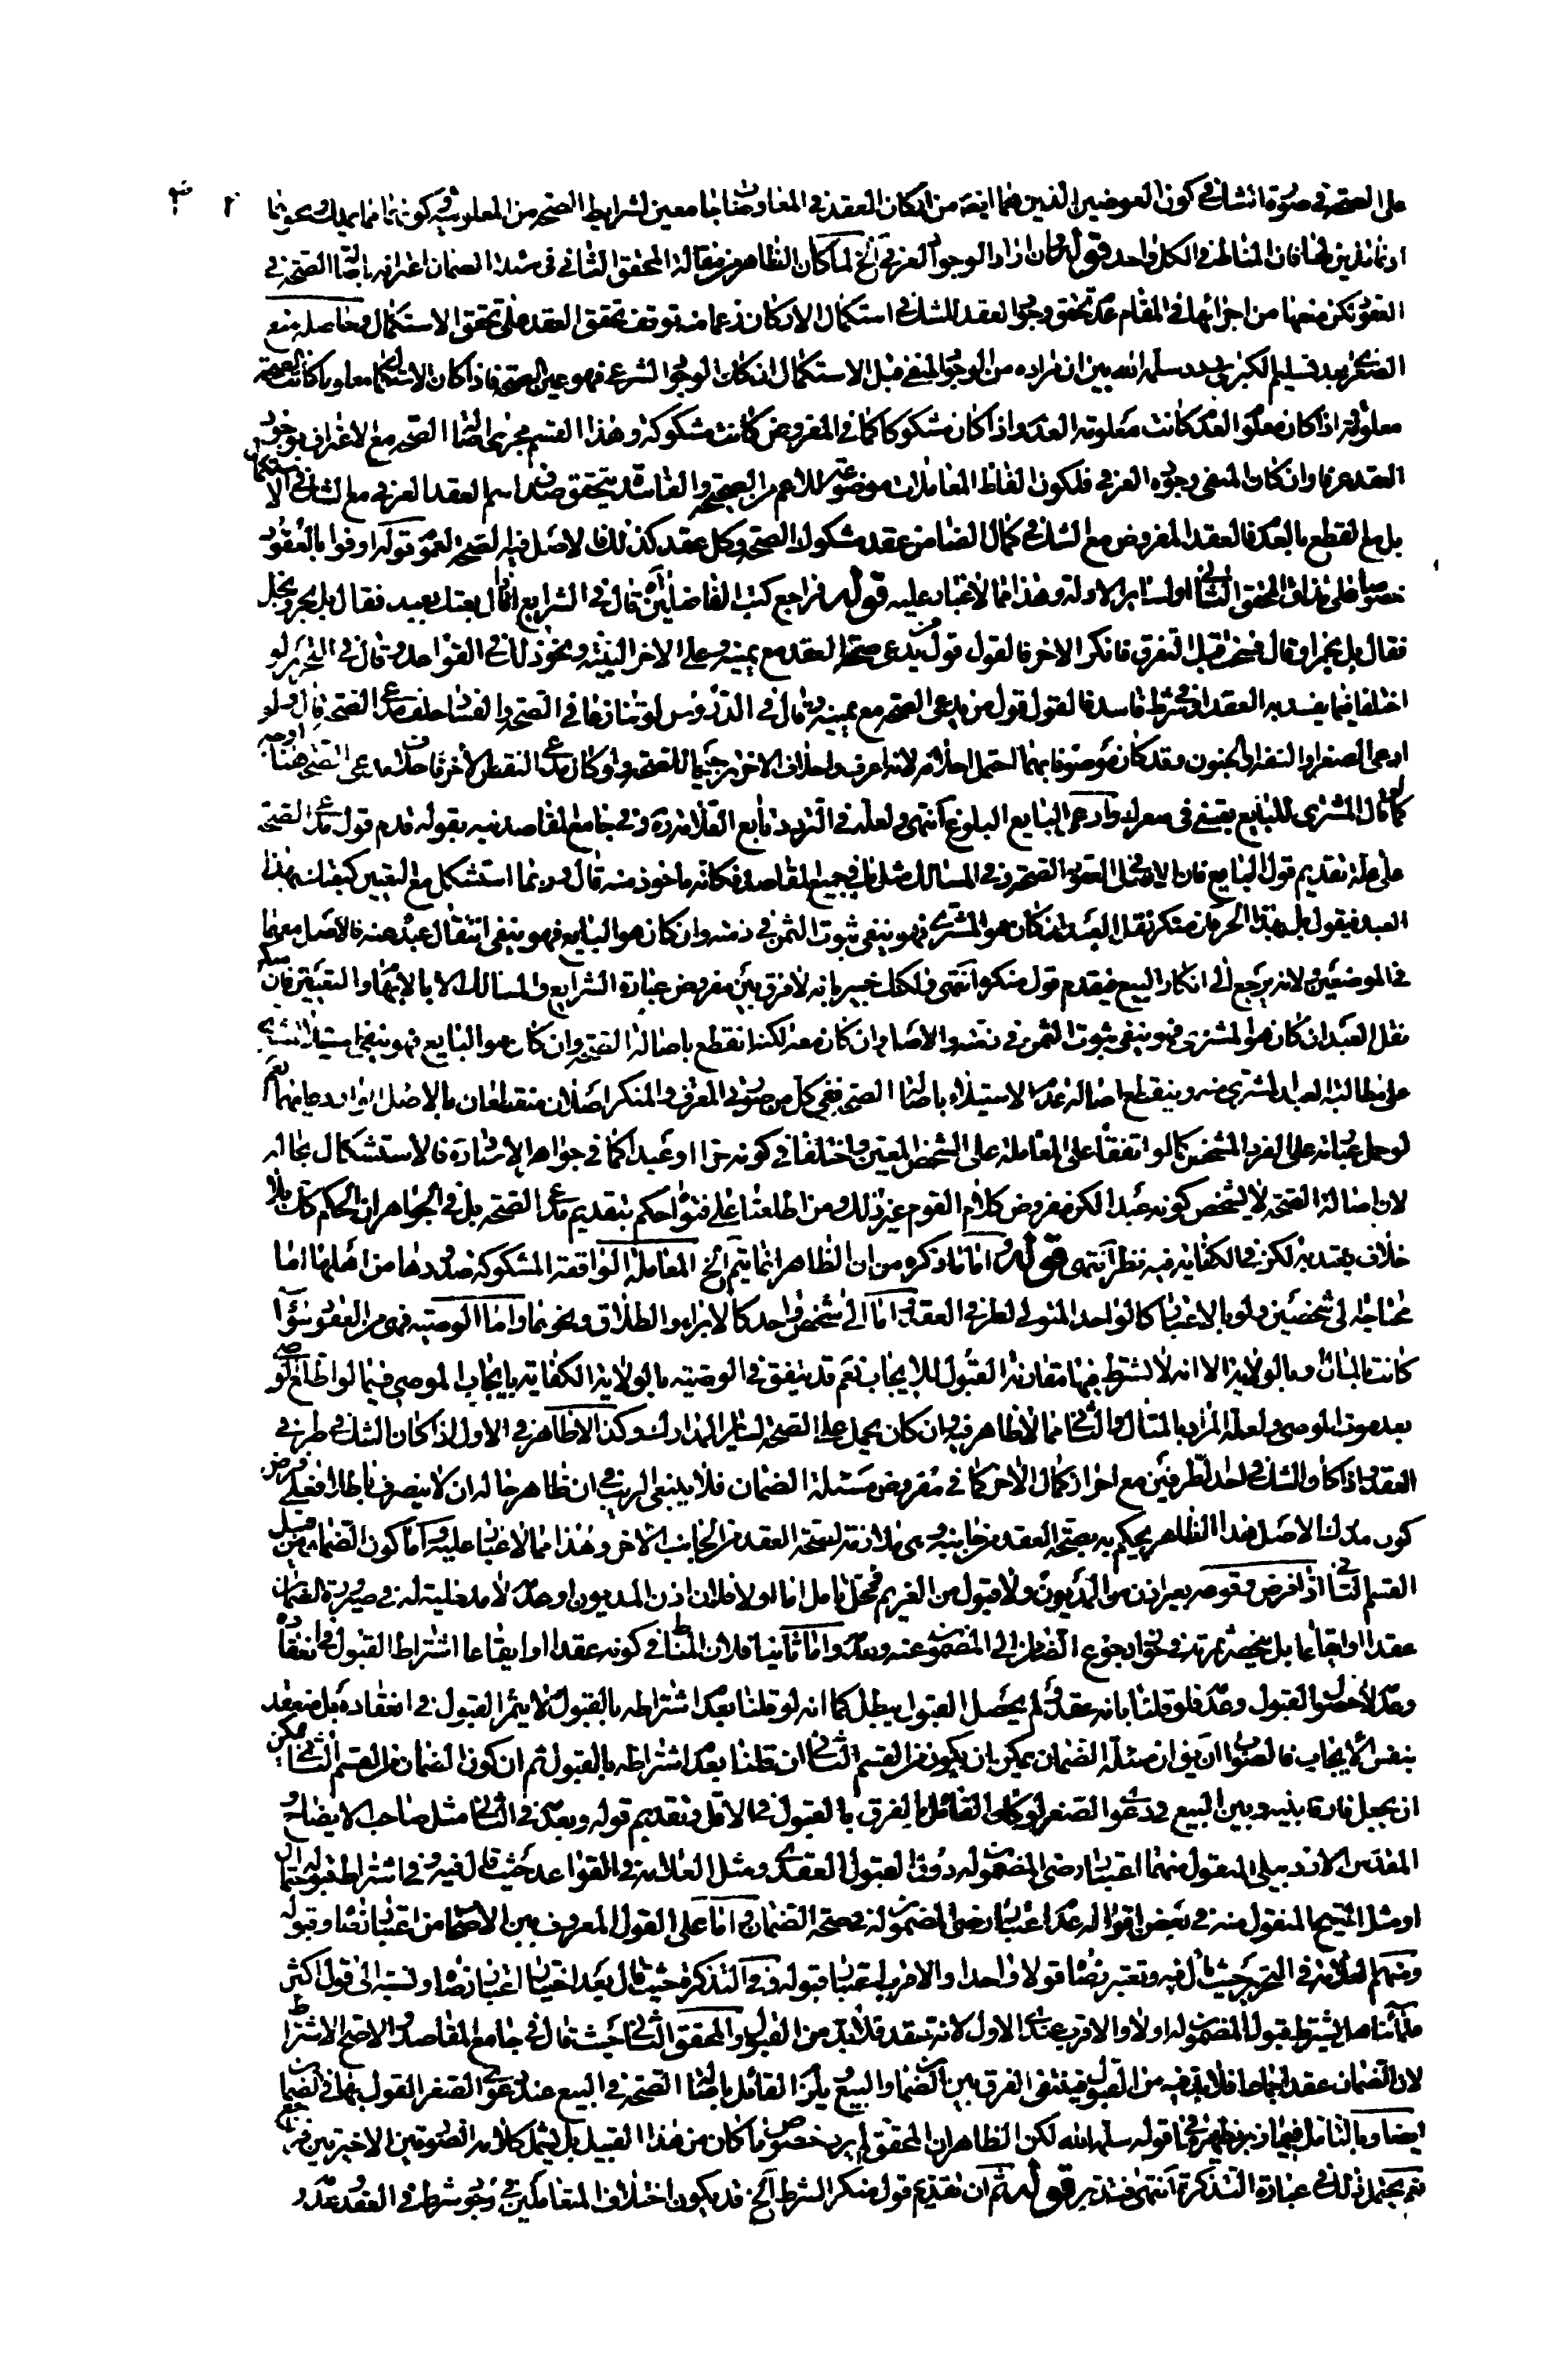 على الصحة في صورة الشك في كون العوضين الذين هما ايضا من اركان العقد في المعاوضات جامعين لشرايط الصحة من المعلومية و كونهما مما يملك و نحو هما
او نافذين لها فان المناط في الكل واحد قوله ان اراد الوجود العرفي الخ لما كان الظاهر من مقالة المحقق الثاني في مسئلة الضمان اعترافه باصالة الصحة في
العقود لكن منعها من اجرائها في المقام عدم تحقق وجود العقد للشك في استكمال الاركان زعما منه توقف تحقق العقد على تحقق الاستكمال و حاصله منع
الصغرى بعد تسليم الكبرى بدد سلمه الله بين ان مراده من الوجود المنفي قبل الاستكمال ان كان الوجود الشرعي فهو عين الصحة فاذا كان الاستكمال معلوما كانت الصحة
معلومة و اذا كان معلوم العدم كانت معلومة العدم و اذا كان مشكوكا كما في المفروض كانت مشكوكة و هذا القسم مجرى اصالة الصحة مع الاعتراف بوجود
العقد عرفا و ان كان المنفي وجوده العرفي فلكون الفاظ المعاملات موضوعة للاعم من الصحيحة و الفاسدة يتحقق صدق اسم العقد العرفي مع الشك في الاستكمال
بل مع القطع بالعدم فالعقد المفروض مع الشك في كمال الضامن عقد مشكوك الصحة و كل عقد كذلك فالاصل فيه الصحة لعموم قوله اوفوا بالعقود
خصوصا على مذاق المحقق الثاني او لساير الادلة و هذا مما لا غبار عليه قوله فراجع كتب الفاضلين قال في الشرايع اذا قال بعتك بعبد فقال بل بحر او بخل
فقال بل بخمر او قال فسخت قبل التفرق فانكر الاخر فالقول قول من يدعي صحة العقد مع يمينه و على الاخر البينة و نحو ذلك في القواعد و قال في التحرير لو
اختلفا فيما يفسد به العقد او في شرط فاسد فالقول قول من يدعي الصحة مع يمينه و قال في الدروس لو تنازعا في الصحة و الفساد حلف مدعي الصحة قال و لو
ادعى الصغر او السفه او الجنون و قد كان موصوفا بهما احتمل احلافه لانه اعرف و احلاف الاخر ترجيحا للصحة و لو كان مدعي النقص الاخر فاحلاف مدعي الصحة هنا اوجه
كما لو قال المشتري للبايع بعتني في صغرك و ادعى البايع البلوغ انتهى و لعله في التردد تابع العلامة و في جامع المقاصد نبه بقوله قدم قول مدعي الصحة
على علة تقديم قول البايع فان الاصل في العقود الصحة و في المسالك مثل ما في جامع المقاصد فكانه ماخوذ منه قال و ربما استشكل مع التعيين كبعتك بهذا
العبد فيقول بل بهذا الحر فان منكر نقل العبد ان كان هو المشتري فهو ينفي ثبوت الثمن في ذمته و ان كان هو البايع فهو ينفي انتقال عبده عنه فالاصل معهما
في الموضعين و لانه يرجع الى انكار البيع فيقدم قول منكره انتهى و لكنك خبير بانه لا فرق بين مفروض عبارة الشرايع و المسالك الا بالابهام و التعيين فان منكر
نقل العبد ان كان هو المشتري فهو ينفي ثبوت الثمن في ذمته و الاصل و ان كان معه لكنه انقطع باصالة الصحة و ان كان هو البايع فهو ينفي استيلاء المشتري
على مطالبة العبد المشتري منه و ينقطع اصالة عدم الاستيلاء باصالة الصحة ففي كل من صورتي المعرف و المنكر اصلان منقطعان بالاصل الوارد عليهما نعم
لو حمل عبارته على الفرد المشخص كما لو اتفقا على المعاملة على الشخص المعين و اختلفا في كونه حرا او عبدا كما في جواهر الاشارة فالاستشكال بحاله
لان اصالة الصحة لا يشخص كونه عبدا لكن مفروض كلام القوم غير ذلك و من اطلعنا على فتواه حكم بتقديم مدعي الصحة بل في الجواهر ان الحكم كان بلا
خلاف يعتد به لكن في الكفاية فيه نظر انتهى قوله اما ما ذكره من ان الظاهر انما يتم الخ المعاملة الواقعة المشكوكة صدورها من اهلها اما
محتاجة الى شخصين و لو بالاعتبار كالواحد المتولي لطرفي العقد و اما الى شخص واحد كالابراء و الطلاق و نحوهما و اما الوصية فهي من العقود سواء
كانت بالمال او بالولاية الا انه لا يشترط فيها مقارنة القبول للايجاب نعم قد يتفق في الوصية بالولاية الكفاية بايجاب الموصي فيما لو اطلع الوصي
بعد موت الموصي و لعله المراد بالمثال و الثاني مما لا ظاهر فيه و ان كان يحمل على الصحة لساير المدارك و كذا لا ظاهر في الاول اذا كان الشك في طرفي
العقد و اذا كان الشك في احد الطرفين مع احراز كمال الاخر كما في مفروض مسئلة الضمان فلا ينبغي الريب في ان ظاهر حاله ان لا يتصرف باطلا فعلى فرض
كون مدرك الاصل هذا الظاهر يحكم به بصحة العقد من جانبه و هي ملازمة لصحة العقد من الجانب الاخر و هذا مما لا غبار عليه و اما كون الضمان من قبيل
القسم الثاني اذا فرض وقوعه بغير اذن من المديون و لا قبول من الغريم فمحل تامل اما اولا فلان اذن المديون و عدمه لا مدخلية له في صيرورة الضمان
عقدا او ايقاعا بل يختص ثمرته في جواز رجوع الضامن الى المضمون عنه و عدمه و اما ثانيا فلان المناط في كونه عقدا او ايقاعا اشتراط القبول في انعقاده
و عدمه لا حصول القبول و عدمه فلو قلنا بانه عقد و لم يحصل القبول يبطل كما انه لو قلنا بعدم اشتراطه بالقبول لا يثمر القبول في انعقاده بل ينعقد
بنفس الايجاب فالصواب ان يق ان مسئلة الضمان يمكن ان يكون من القسم الثاني ان قلنا بعدم اشتراطه بالقبول ثم ان كون الضمان من القسم الثاني يمكن
ان يجعل فارقا بينه و بين البيع في دعوى الصغر لو كان القائل بالفرق بالقبول في الاول و تقديم قوله و بعدمه في الثاني مثل صاحب الايضاح و
المقدس الاردبيلي المنقول منهما اعتبار رضى المضمون له دون القبول العقدي و مثل العلامة في القواعد حيث قال فيه و في اشتراط قبوله احتمال
او مثل الشيخ المنقول منه في بعض اقواله عدم اعتبار رضى المضمون له في صحة الضمان و اما على القول المعروف بين الاصحاب من اعتبار رضاه و قبوله
و منهم العلامة في التحرير حيث قال فيه و تعتبر رضاه قولا واحدا و الاقرب اعتبار قبوله و في التذكرة حيث قال بعد اختيار اعتبار رضاه و نسبته الى قول اكثر
علمائنا هل يشترط قبول المضمون له او لا و الاقرب عندي الاول لانه عقد فلا بد من القبول و المحقق الثاني حيث قال في جامع المقاصد و الاصح الاشتراط
لان الضمان عقد اجماعا فلا بد فيه من القبول فينتفي الفرق بين الضمان و البيع و يلزم القائل باصالة الصحة في البيع عند دعوى الصغر القول بها في الضمان
ايضا و بالتامل فيما ذكرنا يظهر ما في قوله سلمه الله لكن الظاهر ان المحقق لم يرد خصوص ما كان من هذا القبيل بل يشمل كلامه الصورتين الاخيرتين
نعم يحتمل ذلك في عبارة التذكرة انتهى فتدبر قوله ثم ان تقديم قول منكر الشرط الخ قد يكون اختلاف المتعاملين في وجود شرط في العقد و عدمه